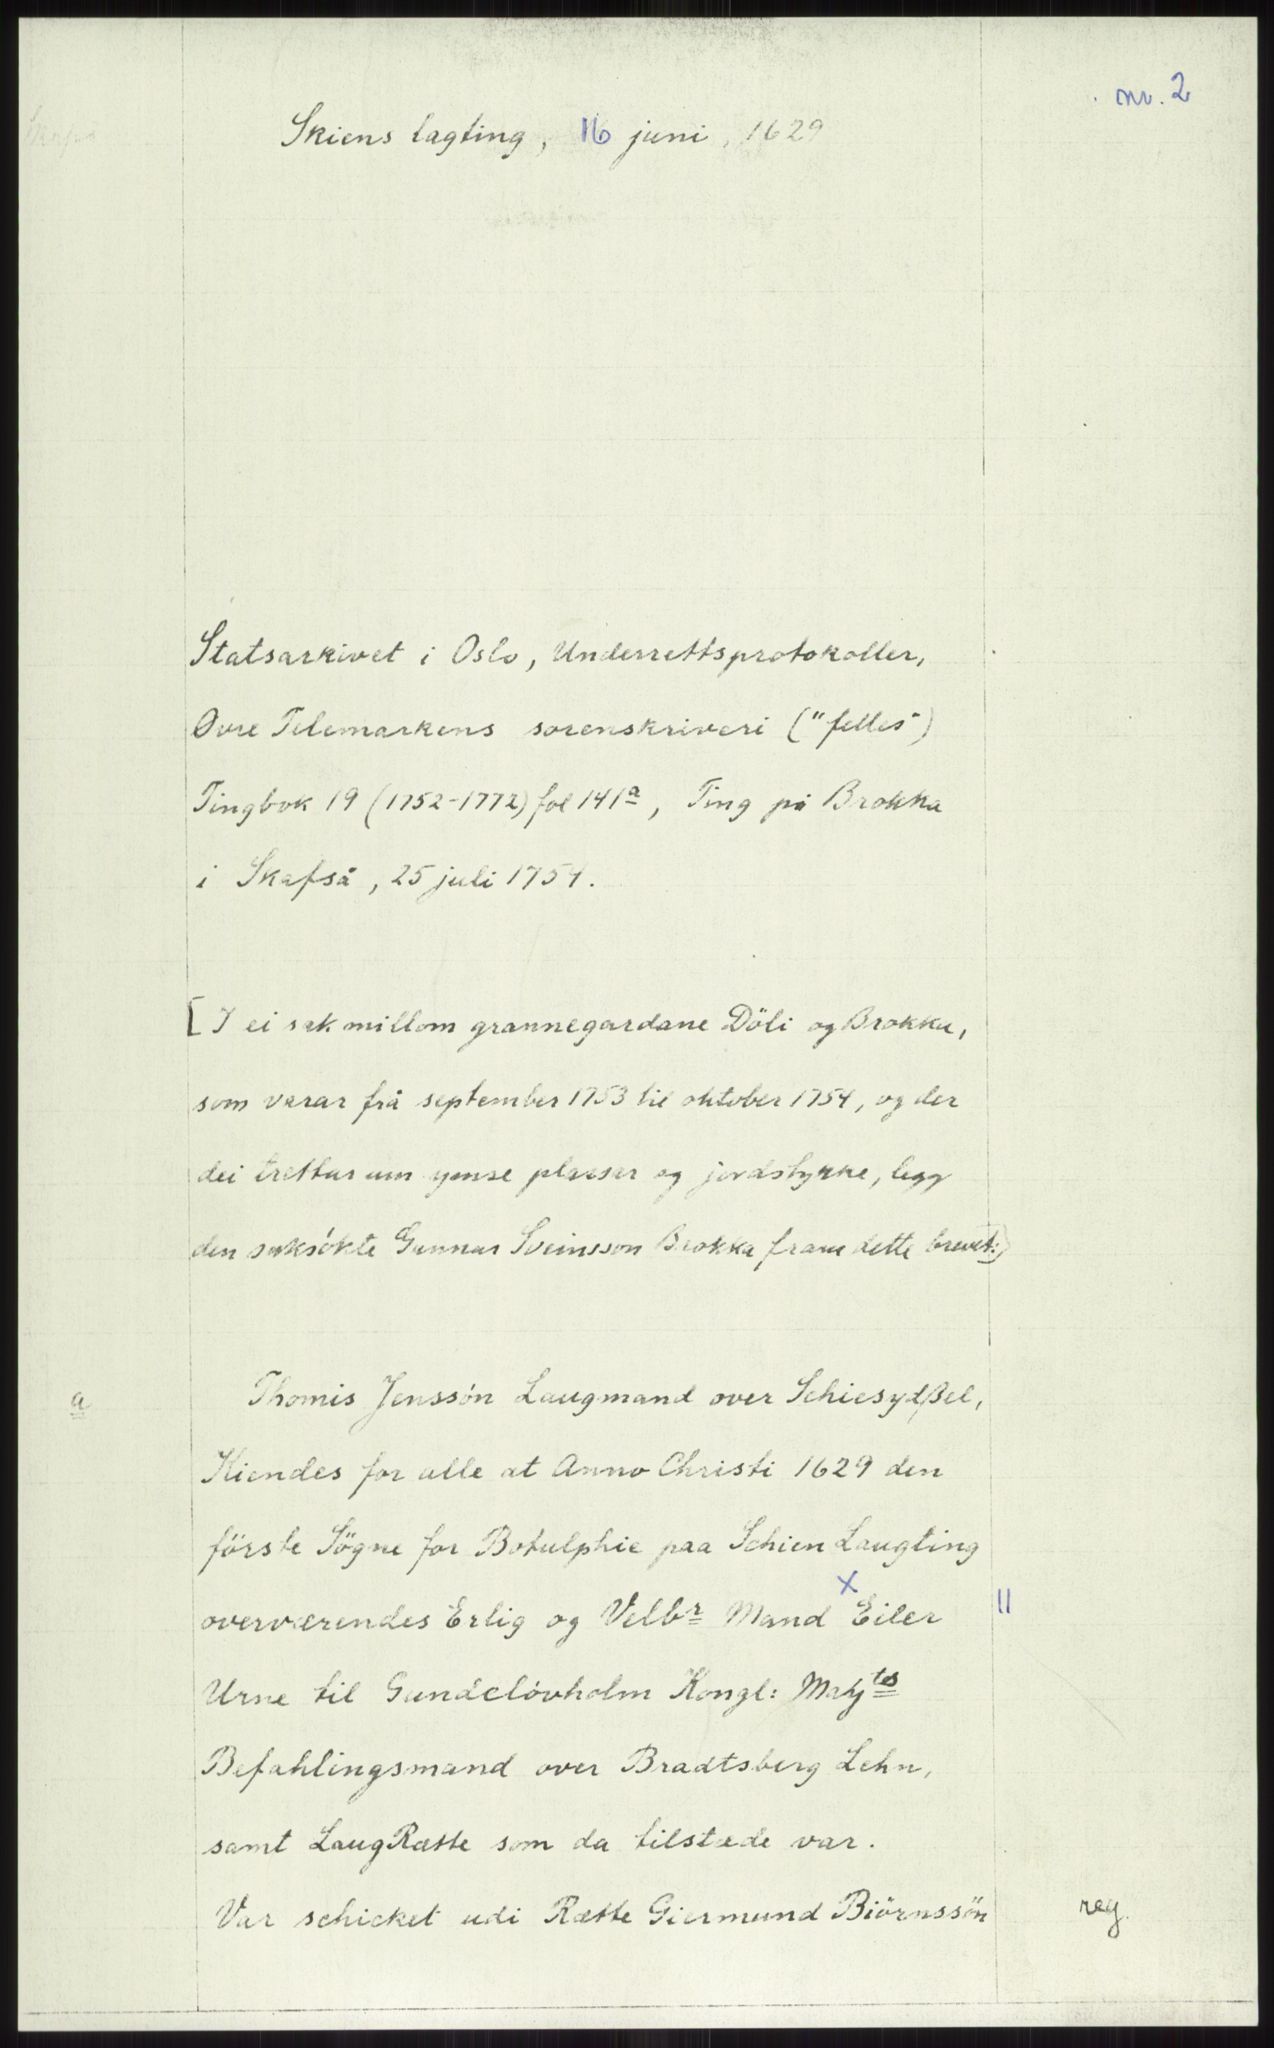 nr. 2
Skiens lagting, 16 juni, 1629
Statsarkivet i Oslo, Underrettsprotokoller,
Øvre Telemarkens sorenskriveri ("felles")
Tingbok 19 (1752-1772) fol 141a, Ting på Brokka
i Skafså, 25 juli 1754.
[I ei sak millom grannegardane Döli og Brokka,
som varar frå september 1753 til oktober 1754, og der
dei trettar um ymse plasser og jordstykke, legg
den saksökte Gunnar Sveinsson Brokka fram dette brevet:]
a
Thomis Jenssön Laugmand over Schiesydßel,
Kiendes for alle at Anno Christi 1629 den
förste Sögne for Botulphie paa Schien Laugting
x
overværendes Erlig og Velbr Mand Eiler
||
Urne til Gundelövholm Kongl: Mayts
Befahlingsmand over Bradtsberg Lehn,
samt LaugRætte som da tilstæde var.
Var schicket udi Rætte Giermund Biörnssön
reg.